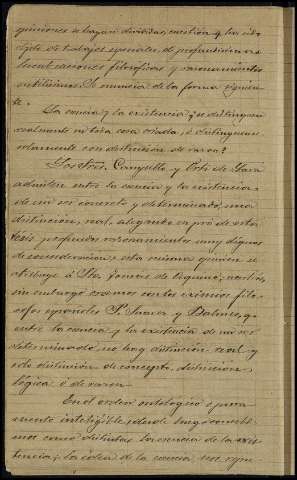 opiniones se hayan divididas, cuestión q. ha sido
objeto de trabajos especiales, de profundisimas
lucubraciones filosóficas y razonamientos
sutilísimos. Se enuncia de la forma siguien-
te.
La esencia y la existencia ¿se distinguen
realmente en toda cosa creada, ó distinguense
solamente con distinción de razon?
Sostres, Campillo y Orti de Lara
admiten entre la esencia y la existencia
de un ser concreto y determinado, una
distinción, real, alegando en pró de esta
tesis profundos razonamientos muy dignos
de consideracion; esta misma quieren se
atribuya á Sto. Tomás de Aquino; nosotros,
sin embargo creemos con los eximios filo-
sofos españoles P. Suarez y Balmes, q.
entre la esencia y la existencia de un ser
determinado, no hay distinción real y
sólo distinción de concepto, distincion
lógica ó de razon.
En el orden ontologico ó pura-
mente inteligible, desde luego concebi-
mos como distintas la esencia de la exis-
tencia; la idea de la esencia nos repre